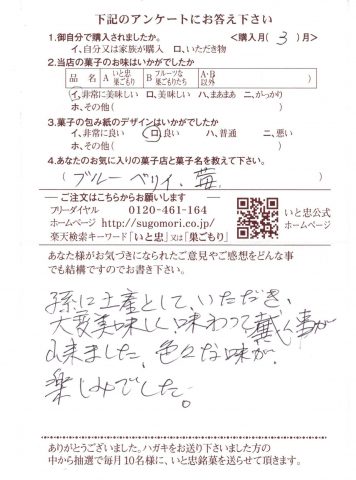 下記のアンケートにお答え下さい
1.御自分で購入されましたか。 <購入月( 3 )月>
イ、自分又は家族が購入 ロ、いただき物
2.当店の菓子のお味はいかがでしたか
品 名 A いと忠巣ごもり B フルーツな巣ごもりたち A・B以外
イ、非常に美味しい ロ、美味しい ハ、まあまあ ニ、がっかり
ホ、その他( )
3.菓子の包み紙のデザインはいかがでしたか
イ、非常に良い ロ、良い ハ、普通 ニ、悪い
ホ、その他( )
4.あなたのお気に入りの菓子店と菓子名を教えて下さい。
( ブルーベリイ、苺 )
ご注文はこちらからお願いします
フリーダイヤル 0120-461-164
ホームページ http://sugomori.co.jp/
楽天検索キーワード「いと忠」又は「巣ごもり」
いと忠公式
ホームページ
あなた様がお気づきになられたご意見やご感想をどんな事
でも結構ですのでお書き下さい。
孫に土産として、いただき、
大変美味しく味わって戴く事が
出来ました。色々な味が
楽しみでした。
ありがとうございました。ハガキをお送り下さいました方の
中から抽選で毎月10名様に、いと忠銘菓を送らせて頂きます。